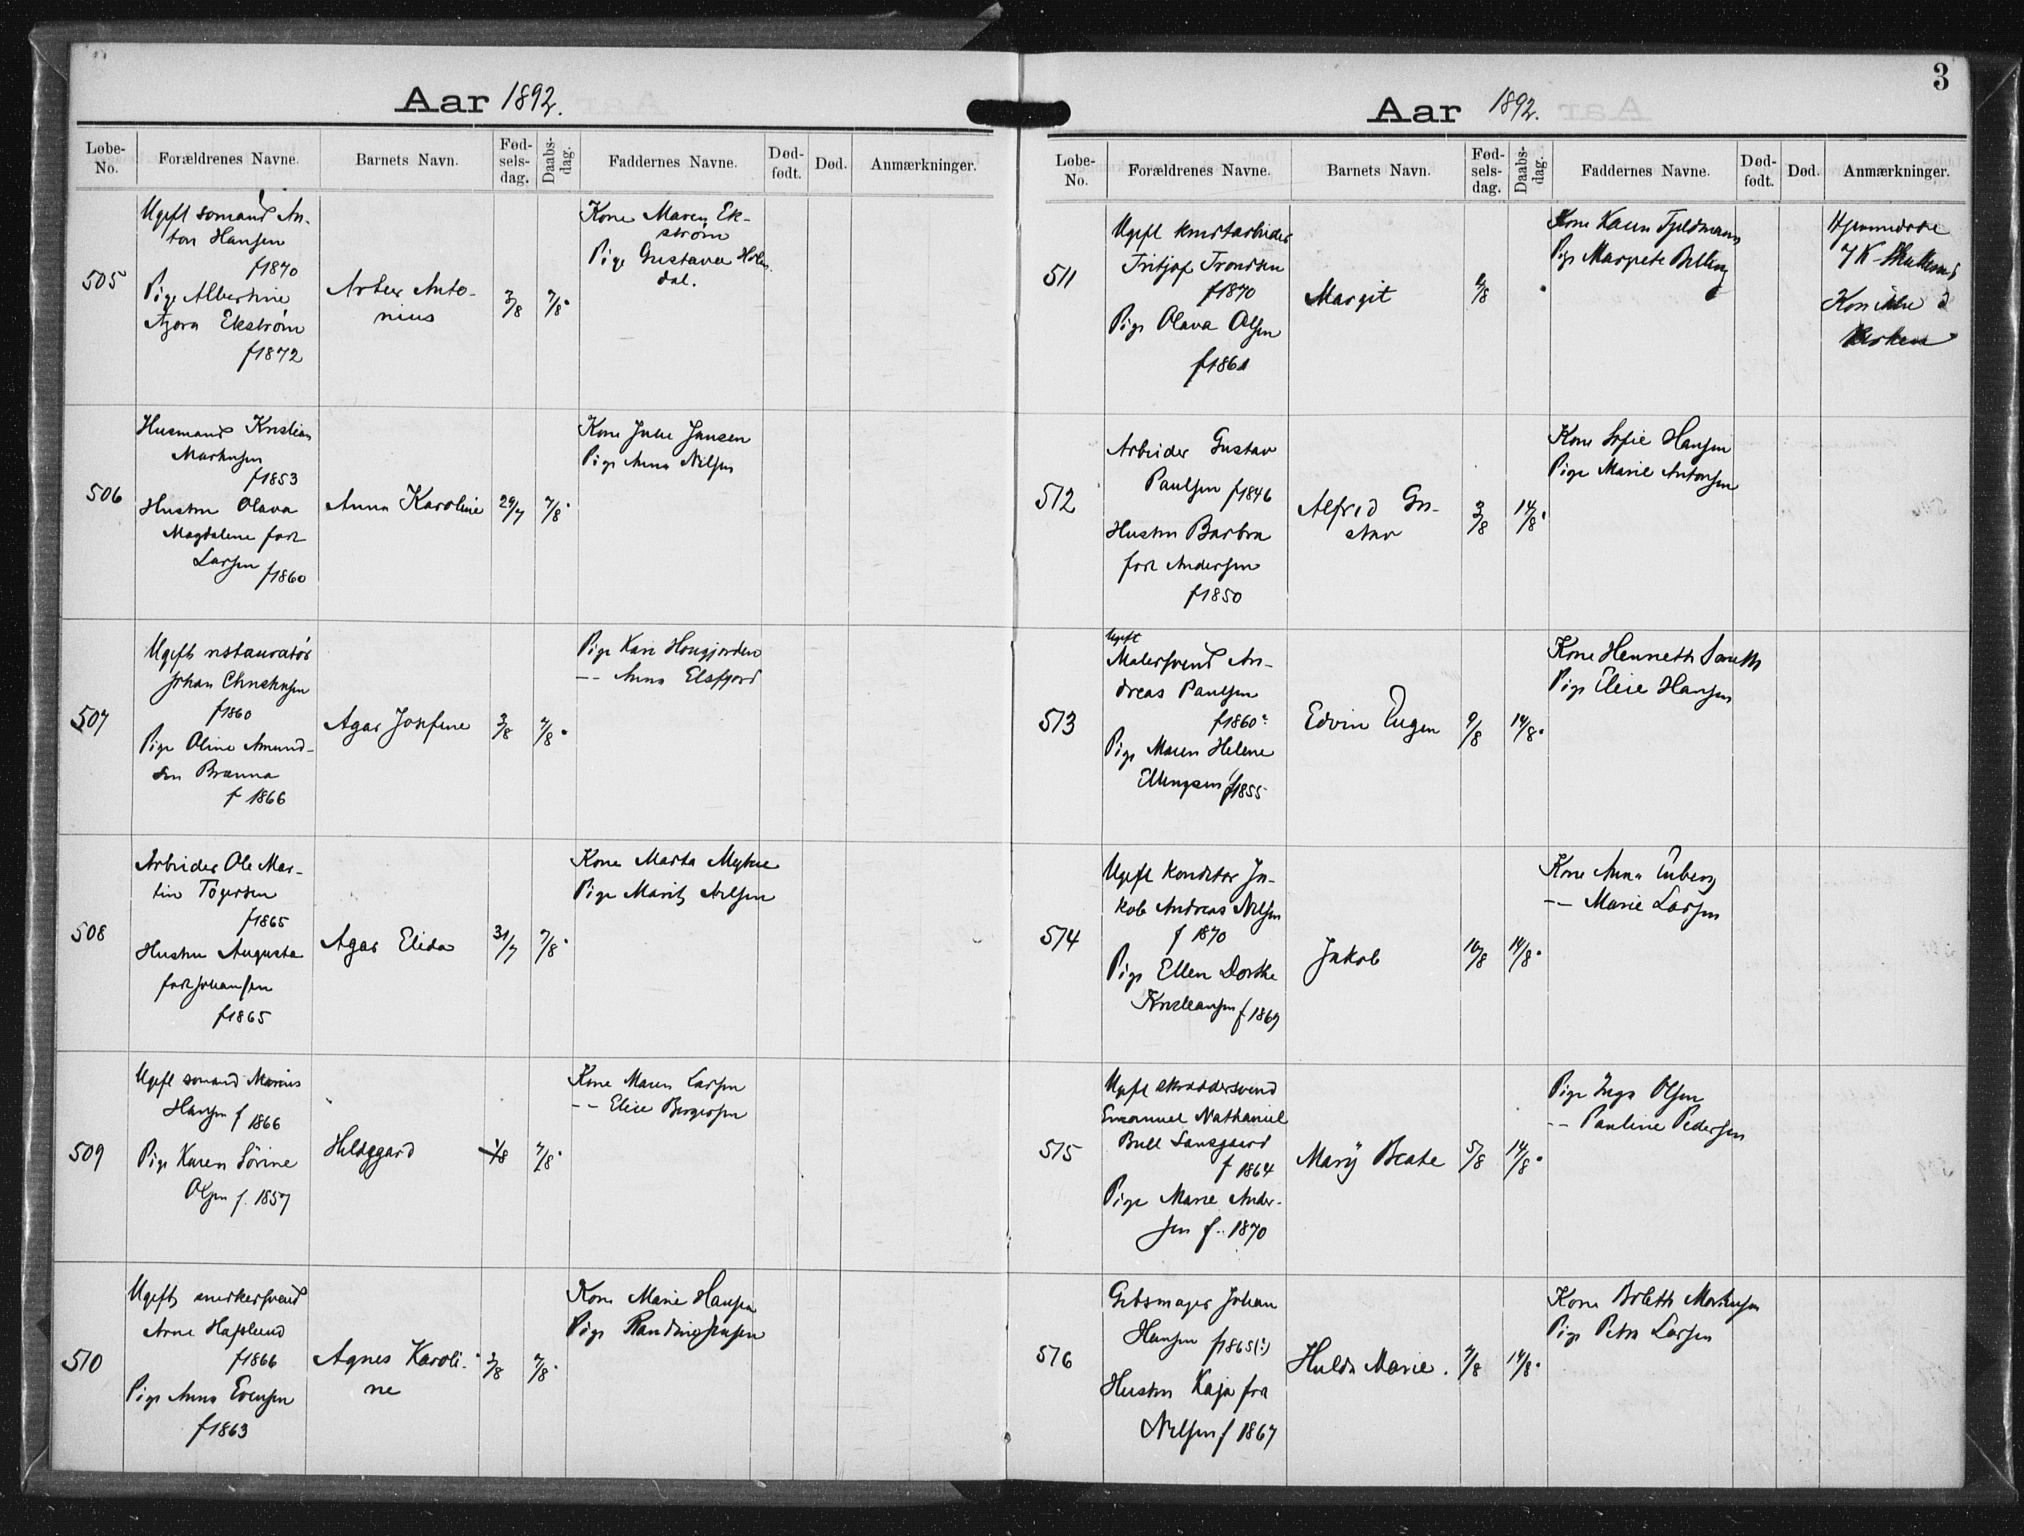 Aar 1892.
Løbe-No. Forældrenes Navne. Barnets Navn. Fød-sels-dag. Daabs-dag. Faddernes Navne. Død-født. Død. Anmærkninger.
505
Ugift sømand An-
ton Hansen
f1870
Pige Albertine
Azora Ekstrøm
f1872
Arter Anto-
nius
3/8 7/8.
Kone Maren Ek-
strøm
Pige Gustava Holm-
dal.
506
Husmand Kristian
Markusen
f1853
Hustru Olava
Magdalene født
Larsen f1860
Anna Karoline
29/7 7/8.
Kone Julie Jansen
Pige Anna Nilsen
507
Ugift restauratør
Johan
f1860
Pige Oline Amund-
sen Brænna
f 1866
Agar Josefine
3/8 7/8.
Pige Kari Hougjorden
-- Anna Elsfjord
508
Arbeider Ole Mar-
tin Tøgersen
f1865
Hustru Augusta
født Johansen
f1865
Agar Elida
31/7 7/8.
Kone Marta Myhre
Pige Marit Nilsen
509
Ugift sømand Marius
Hansen f 1866
Pige Karen Sørine
Olsen f. 1857
Hildeggard
1/8 7/8.
Kone Maren Larsen
-- Elise Bergersen
510
Ugift snedkersvend
Arne Hafslund
f1866
Pige Anna Evensen
f1863
Agnes Karoli-
ne
3/8 7/8.
Kone Marie Hansen
Pige Randi
3
Aar 1892.
Løbe-No. Forældrenes Navne. Barnets Navn. Fød-sels-dag. Daabs-dag. Faddernes Navne. Død-født. Død. Anmærkninger.
511
Ugift
Fritjof Trondsen
f1870
Pige Olava Olsen
f1861
Margit
6/8 .
Kone Karen Fjeldmann
Pige Margrete Billing
Hjemmedøbt
7 K
Kirken
512
Arbeider Gustav
Paulsen f1846
Hustru Barbra
født Andersen
f1850
Alfred Gu-
stav
3/8 14/8.
Kone Sofie Hansen
Pige Marie Antonsen
513
Ugift
Malersvend An-
dreas Paulsen
f1860?
Pige Maren Helene
Ellingsen f1855
Edvin Eugen
9/8 14/8.
Kone Henriette
Pige Elise Hansen
514
Ugift konditor Ja-
kob Andreas Nilsen
f 1870
Pige Ellen Dorthe
Kristiansen f 1869
Jakob
10/8 14/8.
Kone Anna Enberg
-- Marie Larsen
515
Ugift skræddersvend
Emanuel Nathaniel
Bull Sandgaard
f 1864
Pige Marie Ander-
sen f. 1870
Marÿ Beate
5/8 14/8.
Pige Inga Olsen
-- Pauline Pedersen
516
Gibsmager Johan
Hansen f1865(?)
Hustru Kaja fra
Nilsen f 1867
Hulda Marie.
7/8 14/8.
Kone Bolette
Pige Petra Larsen